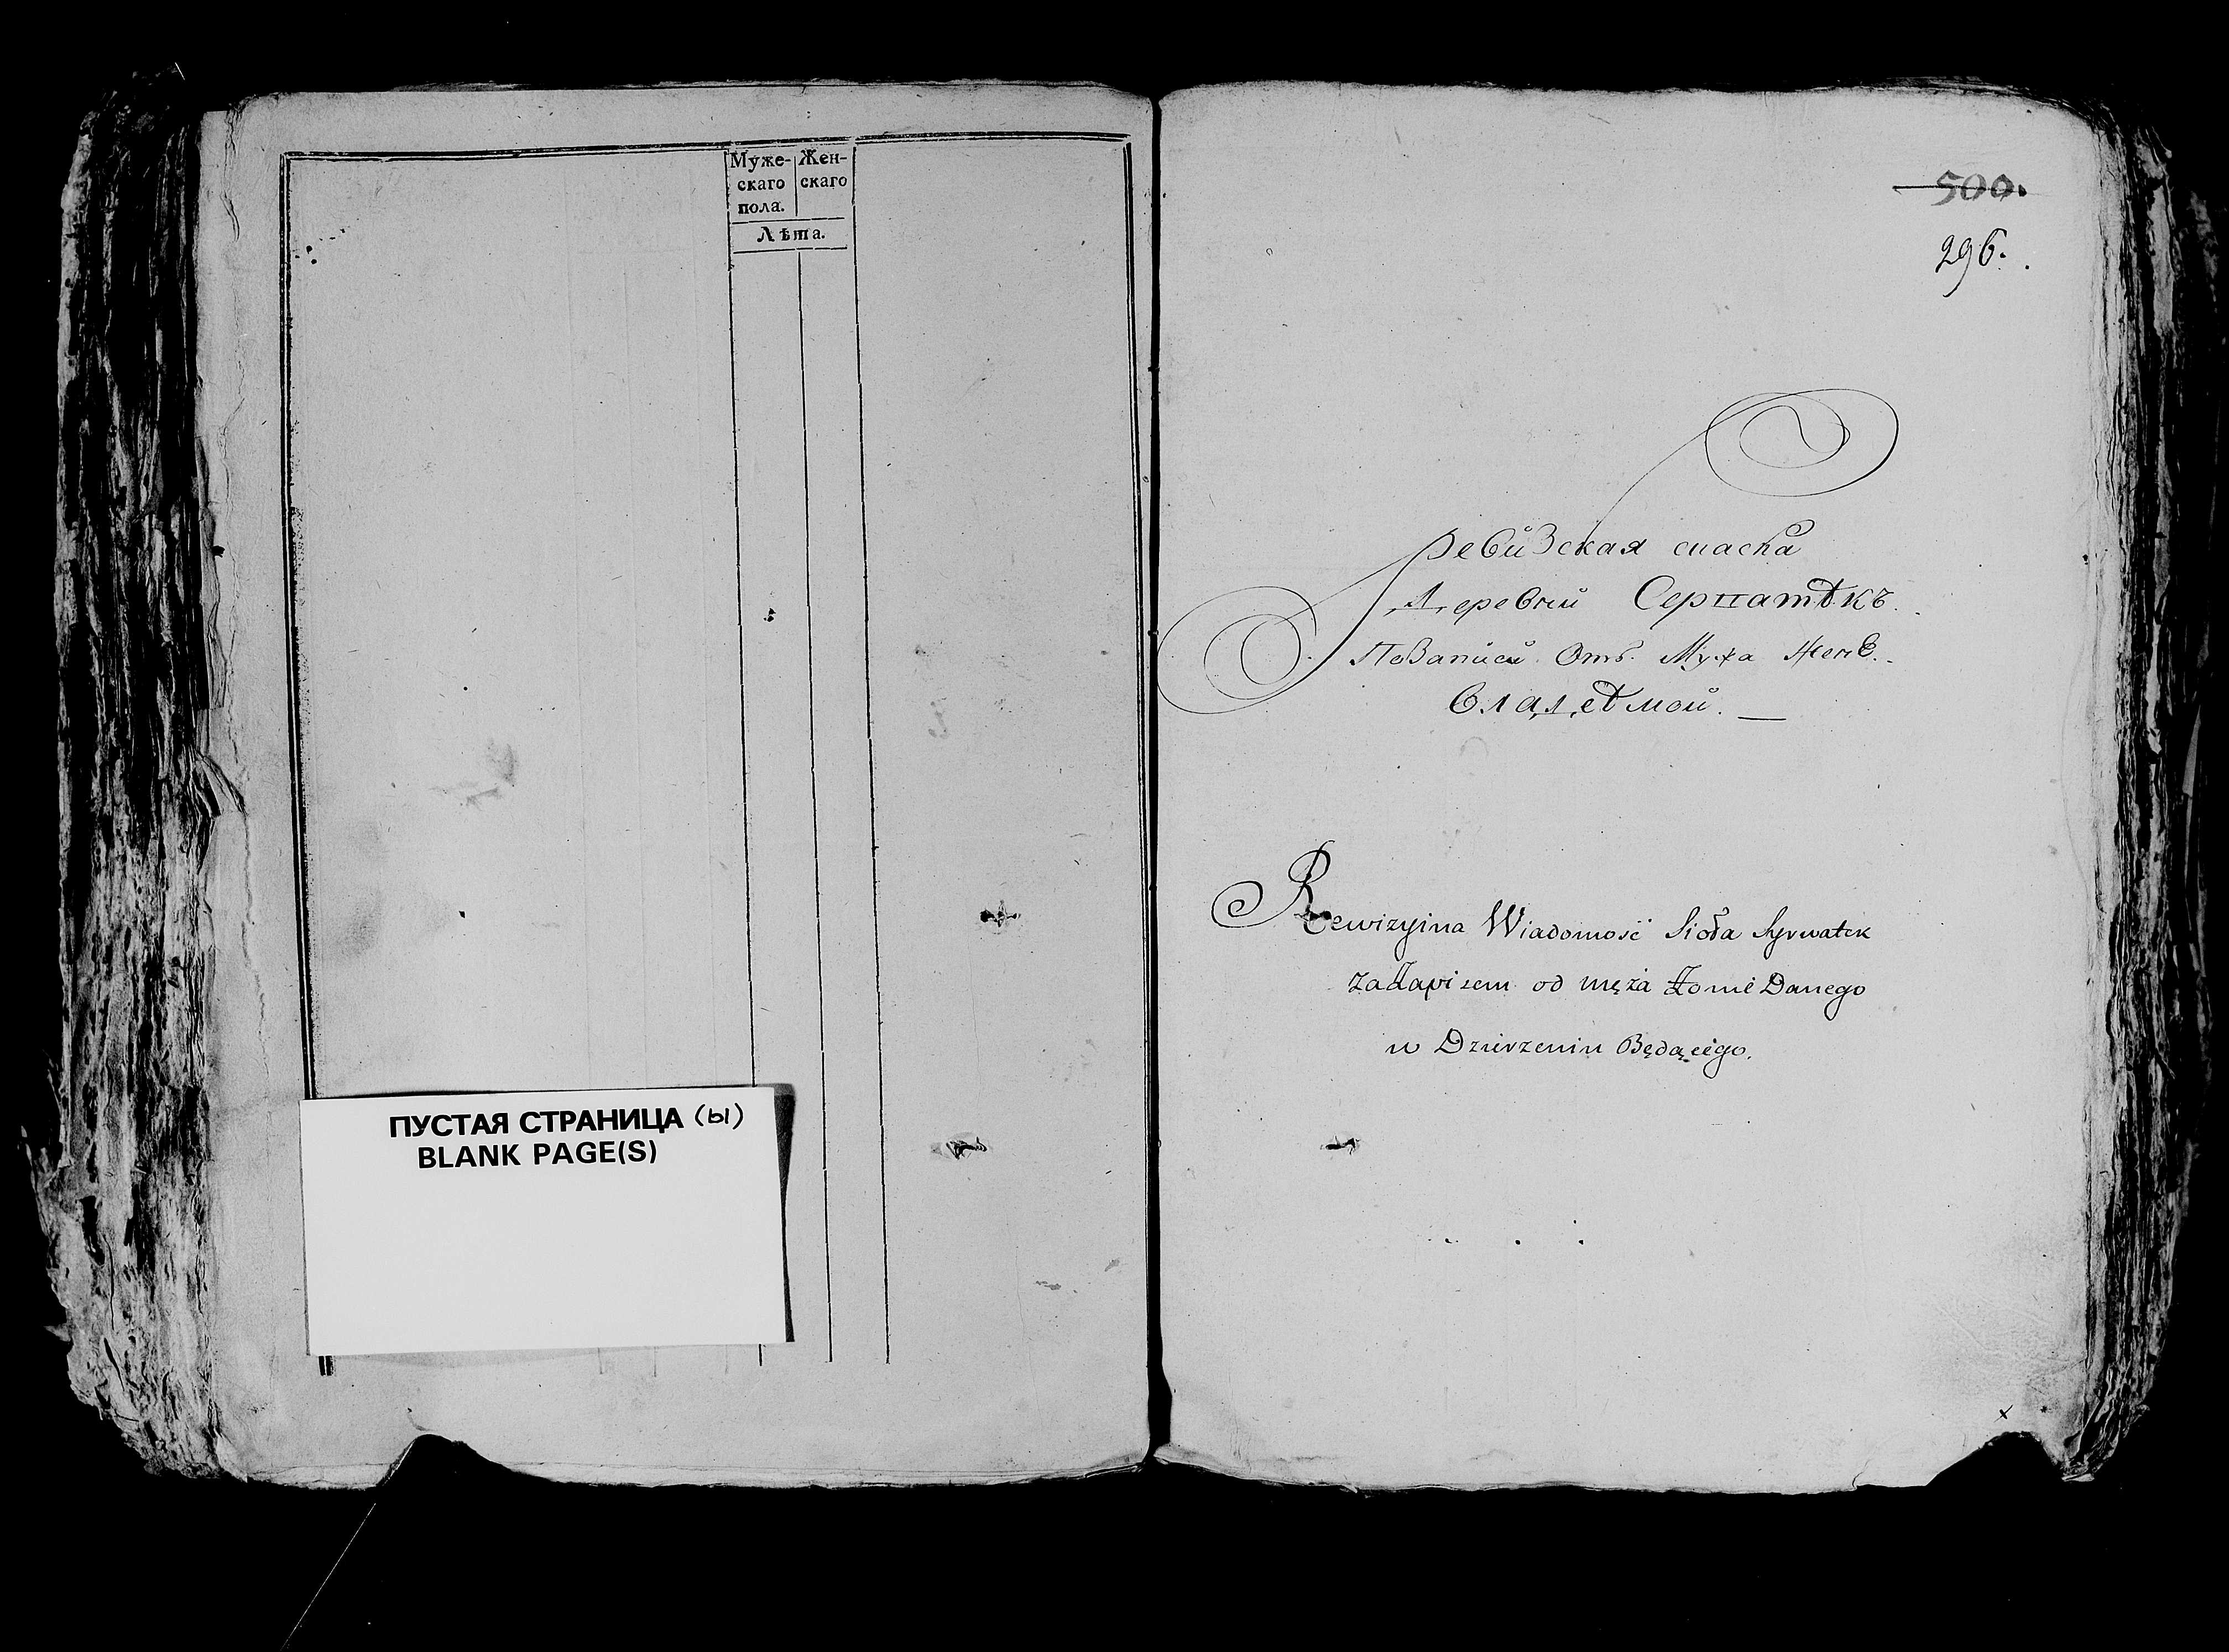 Муже- Жен-
скаго скаго
пола.
Лѣта.
ПУСТАЯ СТРАНИЦА (ы)
BLANK PAGE(S)
500.
296.
Ревизская скаска
Деревни
Позаписи Отъ Мужа Женѣ
Rewizyina Wiadomość Sioła Syrwatek
zaZapisem od męża Żonie Danego
w Dzierzeniu Będącego.
x